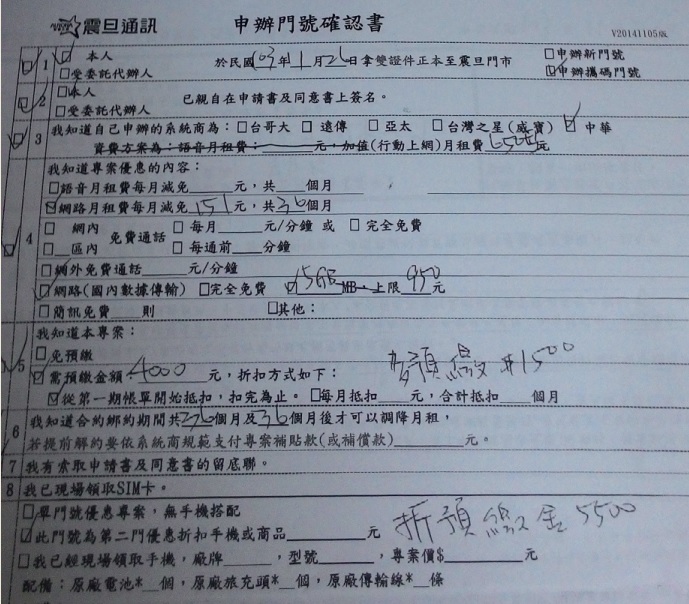 震旦通訊 申辦門號確認書 V20141105版
1 ☑本人 於民國103年11月26日拿雙證件正本至震旦門市 □申辦新門號
□受委託代辦人 ☑申辦攜碼門號
2 □本人 已親自在申請書及同意書上簽名。
□受委託代辦人
3 我知道自己申辦的系統商為：□台哥大 □遠傳 □亞太 □台灣之星(威寶) ☑中華
資費方案為：語音月租費： 元，加值(行動上網)月租費 元
4 我知道專案優惠的內容：
□語音月租費每月減免 元，共 個月
☑網路月租費每月減免 151 元，共 36 個月
□ 網內 免費通話 □ 每月 元/分鐘 或 □ 完全免費
□ 區內 □ 每通前 分鐘
□網外免費通話 元/分鐘
☑網路(國內數據傳輸) □完全免費 ☑ 15GB MB，上限 950 元
□簡訊免費 則 □其他：
5 我知道本專案：
□免預繳
☑需預繳金額 4000 元，折扣方式如下： 多預繳 $1500
☑從第一期帳單開始抵扣，扣完為止。□每月抵扣 元，合計抵扣 個月
6 我知道合約綁約期間共 36 個月及 36 個月後才可以調降月租，
若提前解約要依系統商規範支付專案補貼款(或補償款) 元。
7 我有索取申請書及同意書的留底聯。
8 我已現場領取SIM卡。
□單門號優惠專案，無手機搭配
☑此門號為第二門優惠折扣手機或商品 元 折預繳金5500
□我已經現場領取手機，廠牌 ，型號 ，專案價$ 元
配備：原廠電池* 個，原廠旅充頭* 個，原廠傳輸線* 條